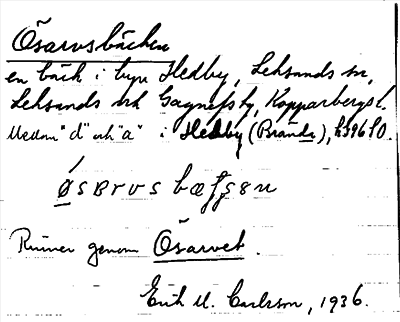 Ösarvsbäcken
en bäck i byn Hedby, Leksands sn,
Leksands och Gagnefs tg, Kopparbergs l.
Mellan "d" och "a" i Hedby (Brända),
øsarvs
Rinner genom Ösarvet.
Erik M. Carlsson, 1936.